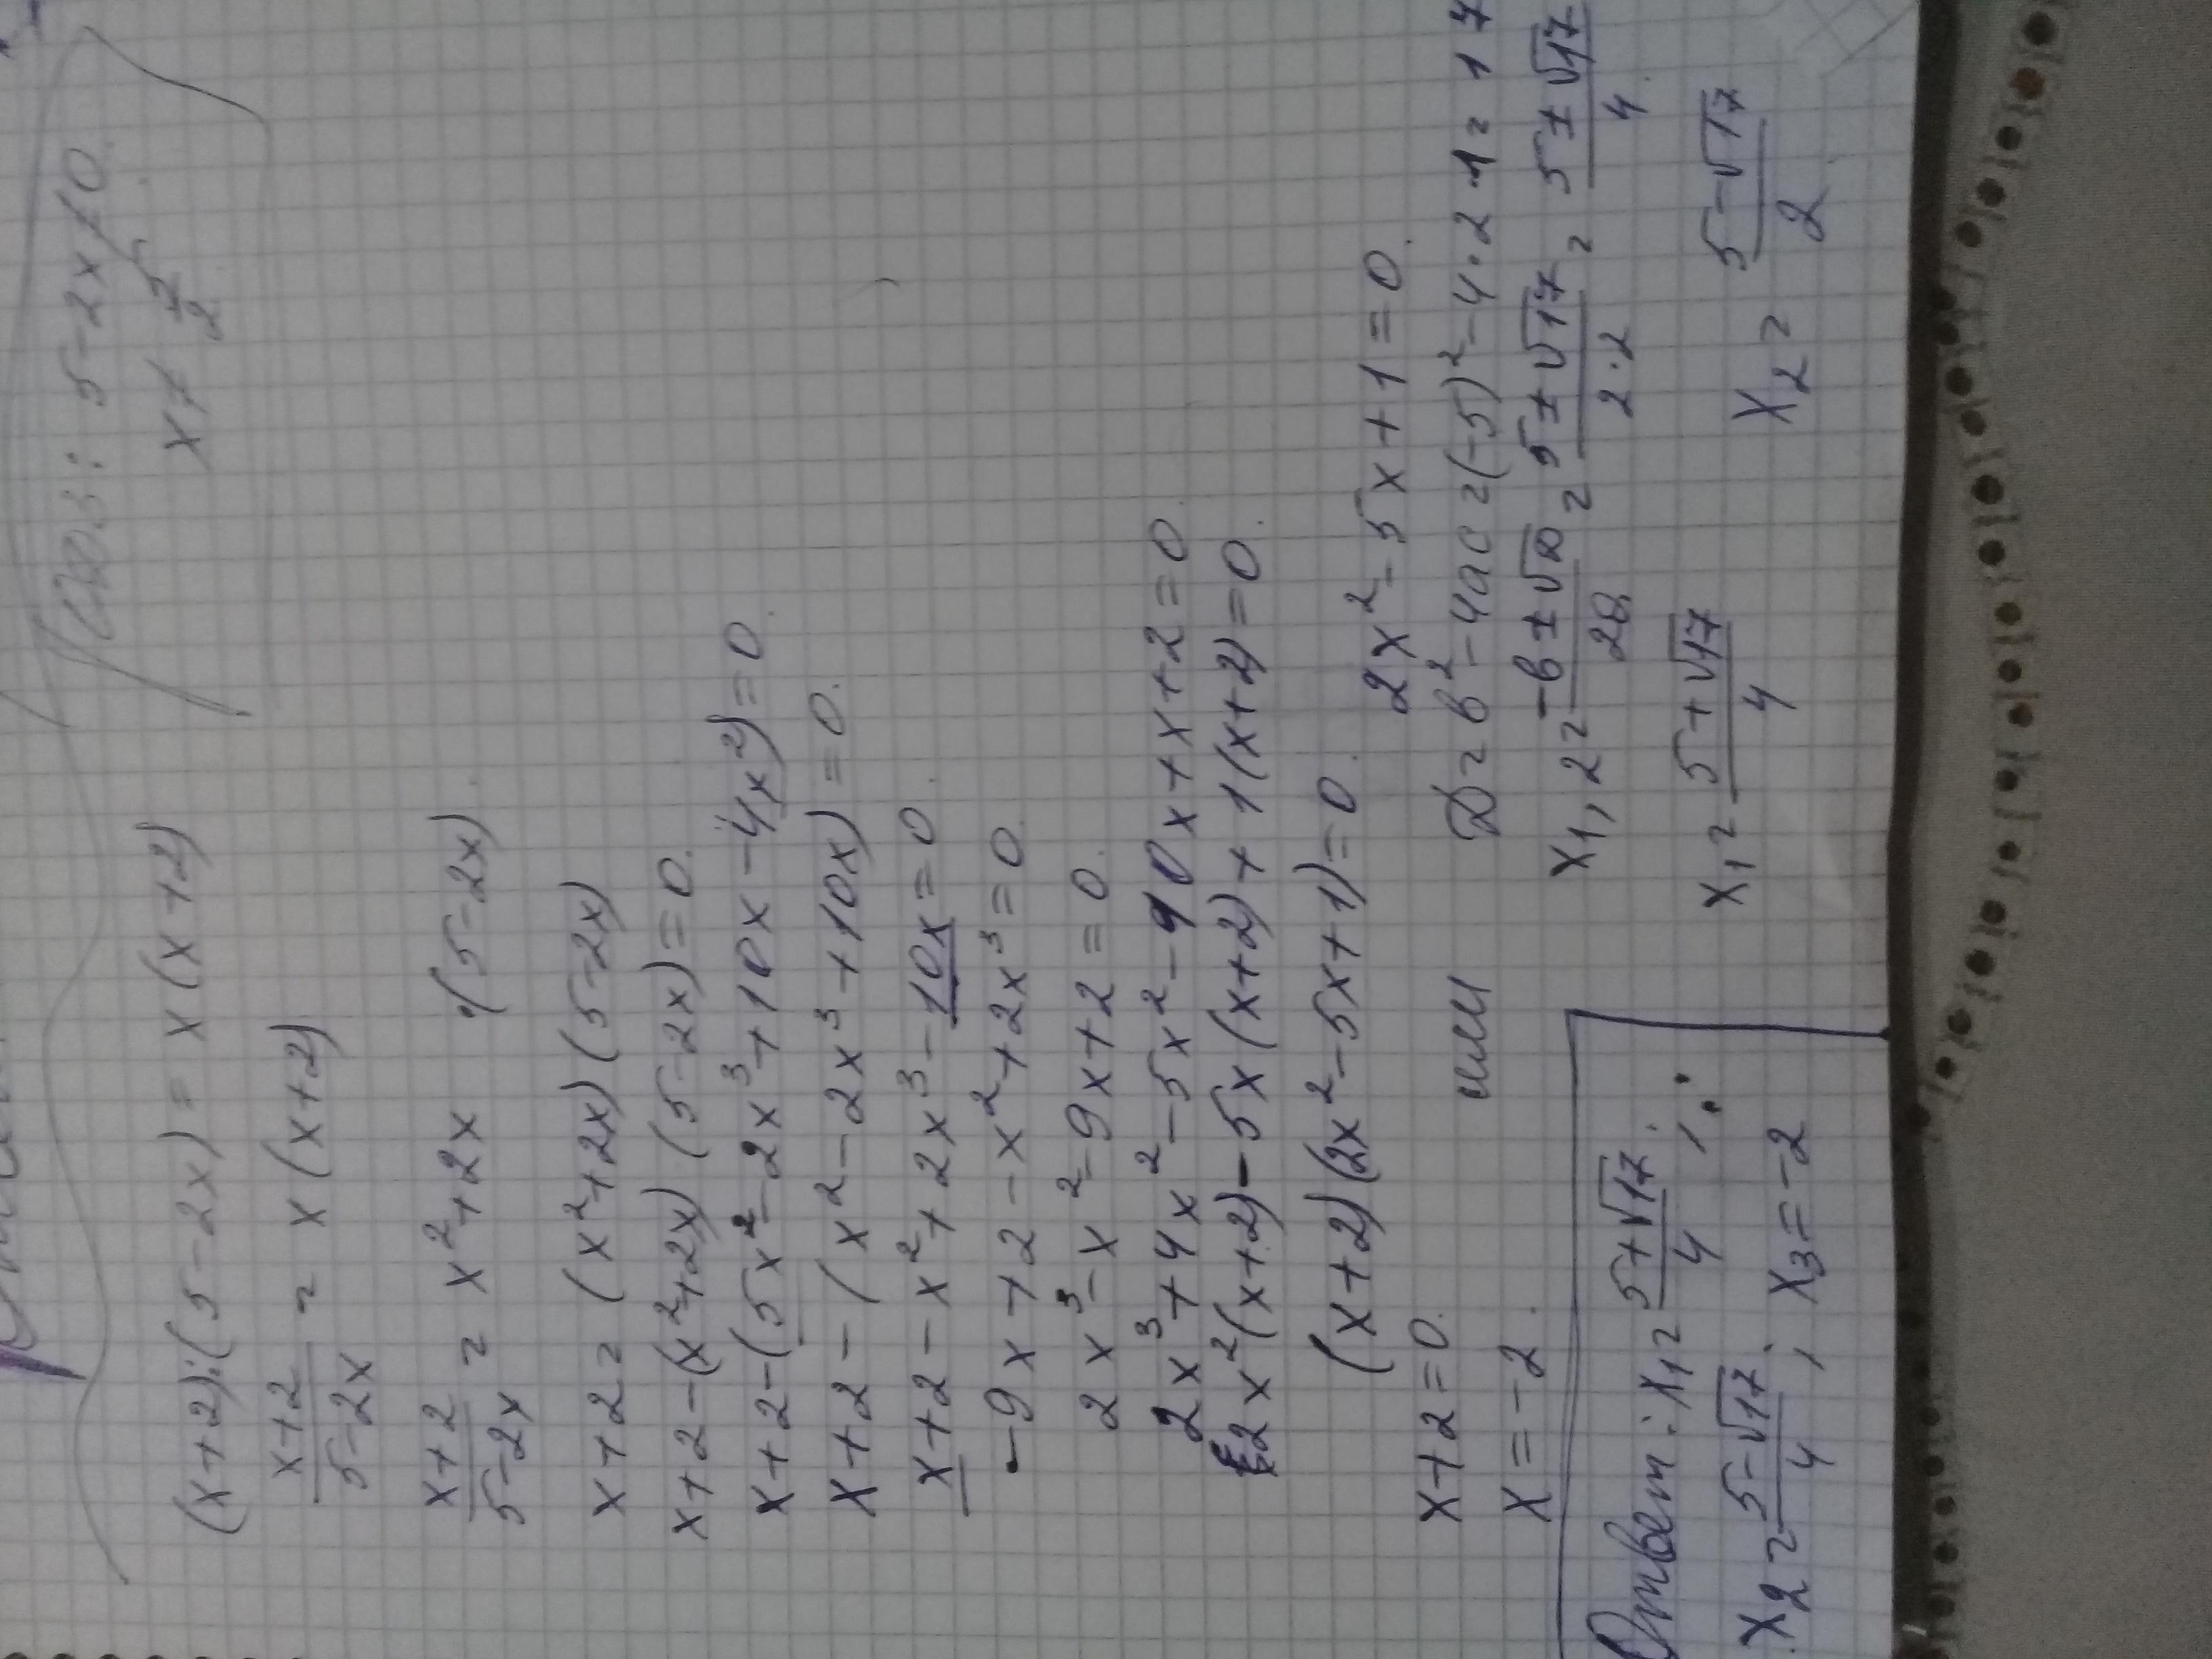 ОДЗ: 5-2x≠0.
x≠ 5/2
(x+2):(5-2x)=x(x+2)
(x+2)/(5-2x) = x(x+2)
(x+2)/(5-2x) = x²+2x ·(5-2x).
x+2=(x²+2x)(5-2x)
x+2-(x²+2x)(5-2x)=0.
x+2-(5x²-2x³+10x-4x²)=0.
x+2-(x²-2x³+10x)=0.
x+2-x²+2x³-10x=0.
-9x+2-x²+2x³=0.
2x³-x²-9x+2=0.
2x³+4x²-5x²-10x+x+2=0.
2x²(x+2)-5x(x+2)+1(x+2)=0.
(x+2)(2x²-5x+1)=0.
x+2=0. или 2x²-5x+1=0.
x=-2. D=b²-4ac=(-5)²-4·2·1=17
x1,2= (-b±√D)/2a = (5±√17)/(2·2) = (5±√17)/4.
x1= (5+√17)/4 x2= (5-√17)/2
Ответ: x1= (5+√17)/4;
x2= (5-√17)/4; x3=-2